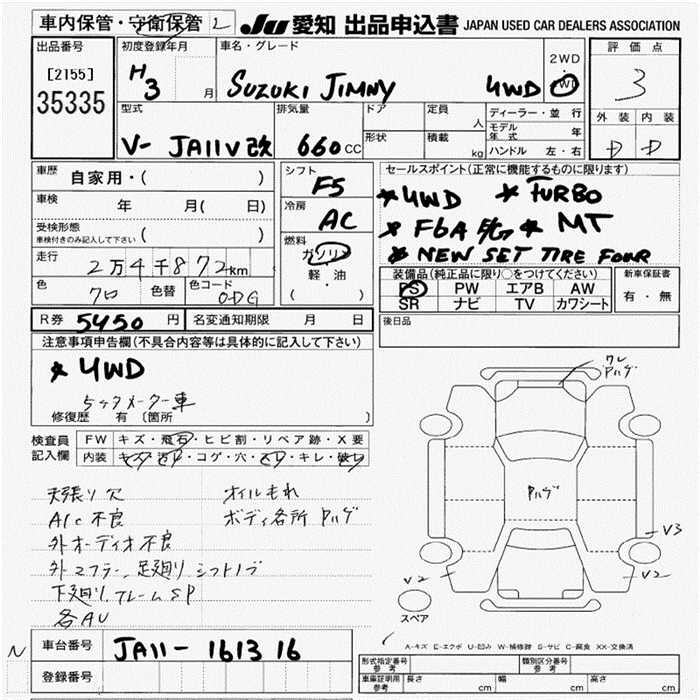 車内保管・守衛保管 2 JU 愛知 出品申込書 JAPAN USED CAR DEALERS ASSOCIATION
出品番号 初度登録年月 車名・グレード 2WD 評価点
[2155] H3 月 SUZUKI JIMNY 4WD 4WD 3
35335
型式 排気量 ドア 定員 人 ディーラー・並行 外装 内装
モデル年式 年
V- JA11V改 660 CC 形状 積載 kg ハンドル 左・右 D D
車歴 自家用・( ) シフト F5 セールスポイント(正常に機能するものに限ります)
車検 年 月( 日) 冷房 AC ★4WD ★TURBO
受検形態 ( ) ★F6A ★MT
車検付きのみ記入して下さい 燃料 ★NEW SET TIRE FOUR
走行 2万4千872km ガソリン 装備品(純正品に限り○をつけてください) 新車保証書
色 色替 色コード 軽・油 PS PW エアB AW 有・無
クロ 0DG ( ・ ) SR ナビ TV カワシート
R券 5450円 名変通知期限 月 日 後日品
注意事項申告欄(不具合内容等は具体的に記入して下さい)
★4WD
5ケタメーター車
修復歴 有 〔箇所 〕
ワレ
ハゲ
検査員 FW キズ・飛石・ヒビ割・リペア跡・X要
記入欄 内装 キズ・汚レ・コゲ・穴・スレ・キレ・破レ
天張り欠 オイルもれ
A/C不良 ボディ各所 ハゲ
外オーディオ不良
外マフラー、足廻り、シフトノブ
下廻り、フレームSP
各AU
ハゲ
V3
V2 V2
スペア
A-キズ E-エクボ U-凹み W-補修跡 S-サビ C-腐食 XX-交換済
N 車台番号 JA11-161316
登録番号
形式指定番号 参考 類別区分番号 参考
車庫証明用 参考 長さ cm 幅 cm 高さ cm